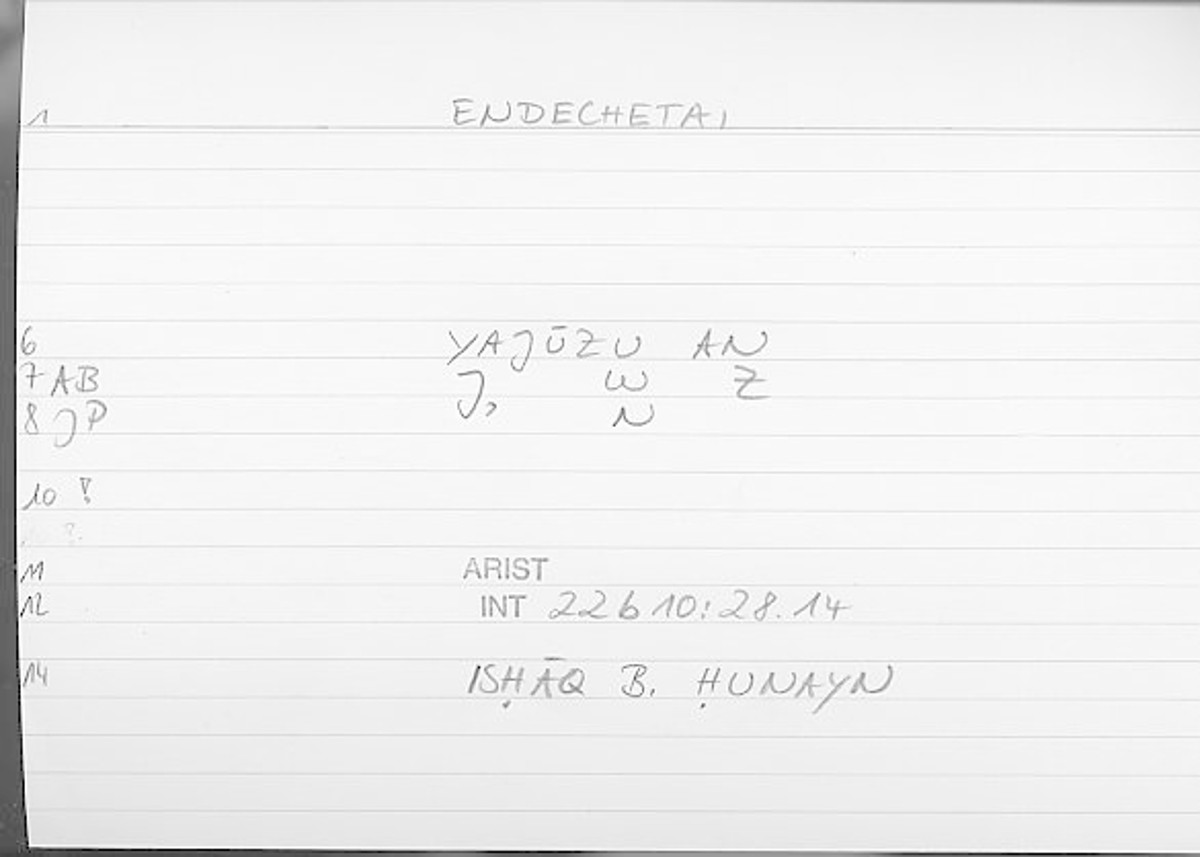 1 ENDECHETAI
6 YAJŪZU AN
7 AB J, W Z
8 JP N
10 !
11 ARIST
12 INT 22b10:28.14
14 ISḤĀQ B. ḤUNAYN